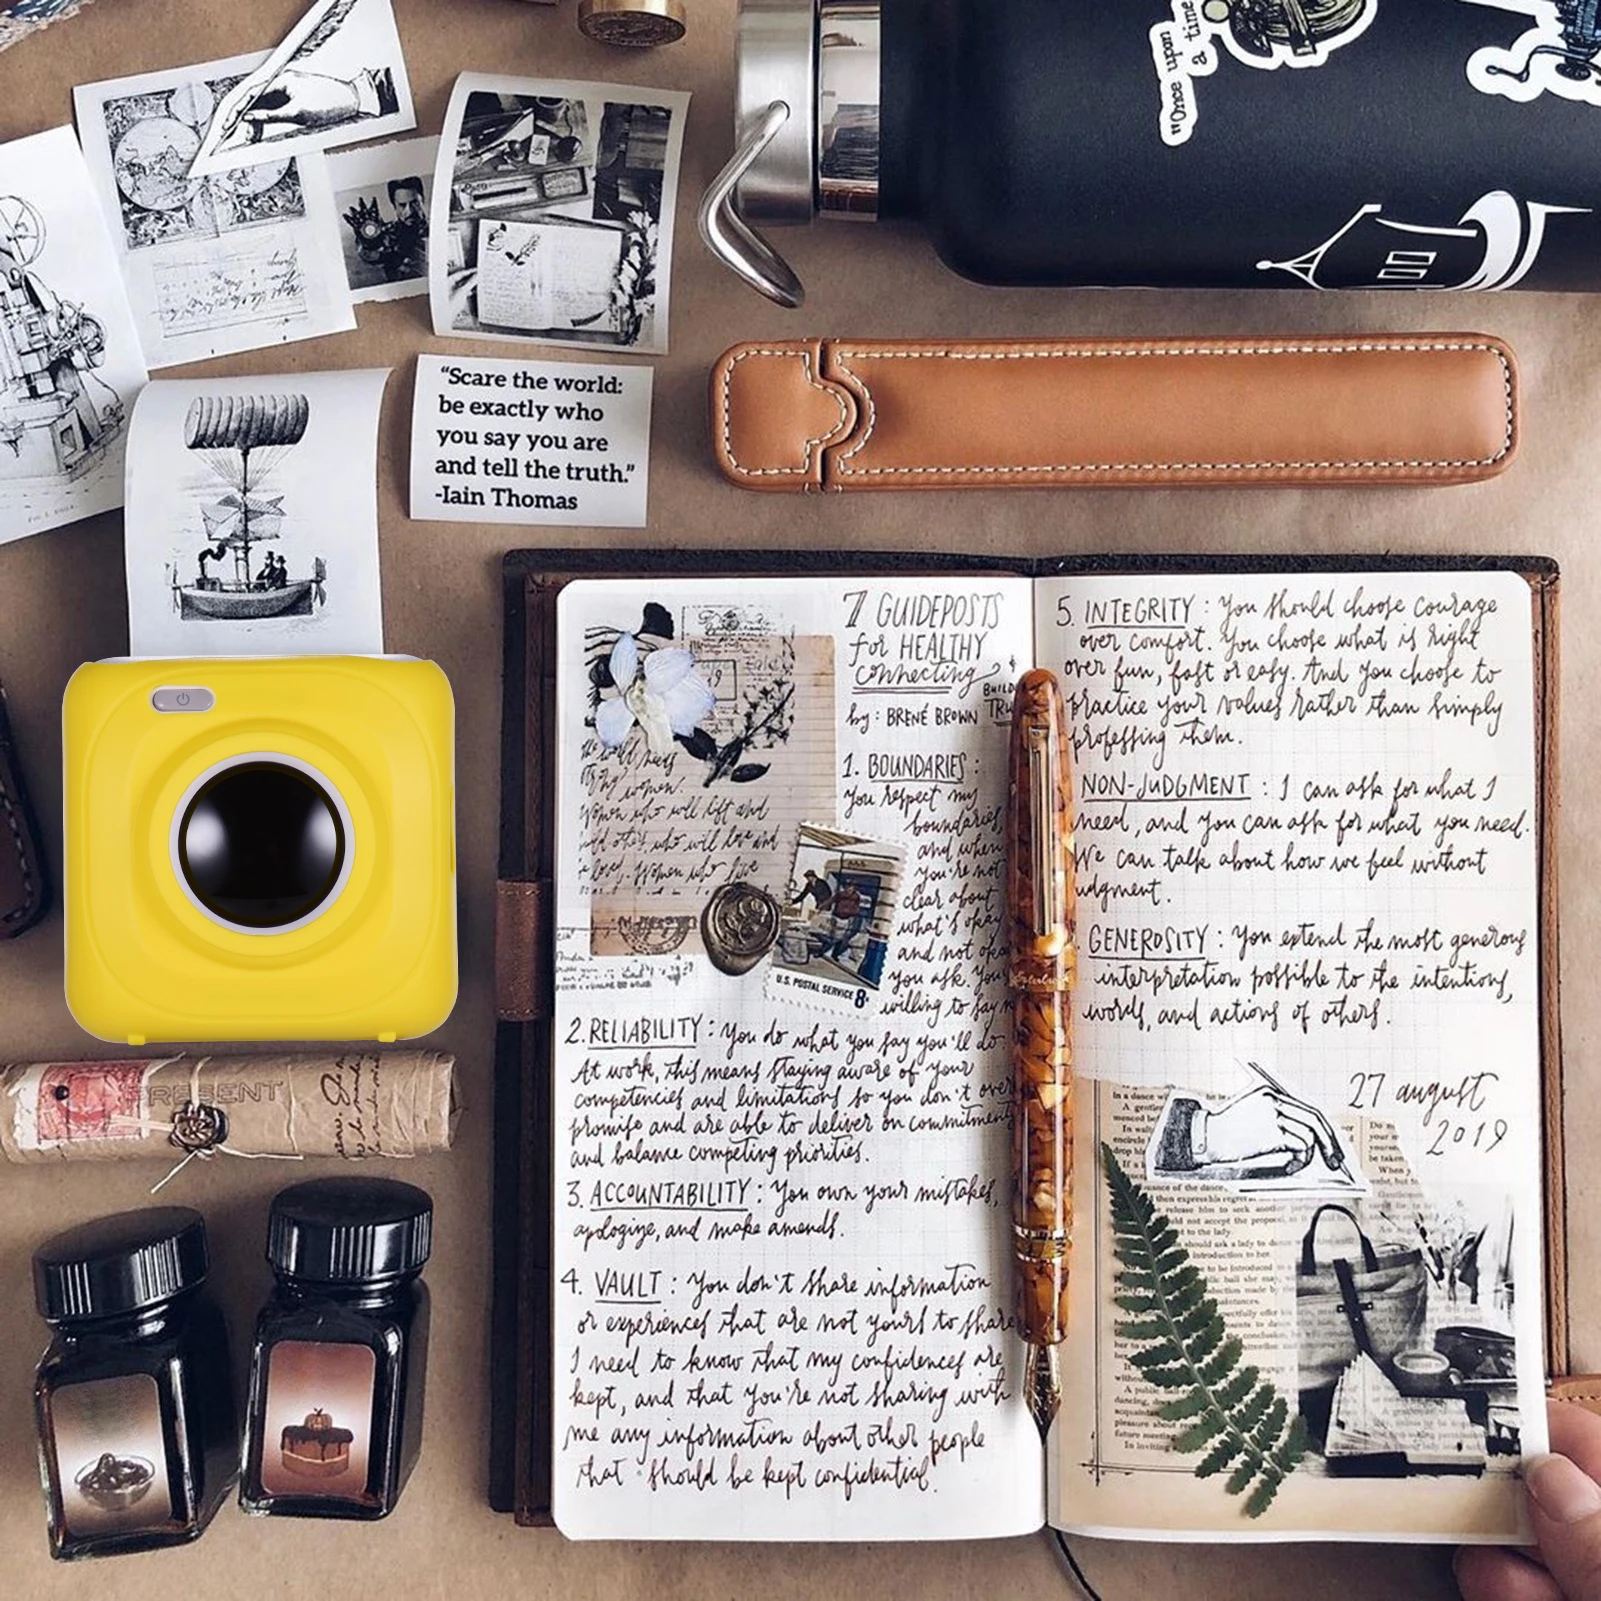 "Once upon
a time
"Scare the world:
be exactly who
you say you are
and tell the truth."
-Iain Thomas
PRESENT
7 GUIDEPOSTS
for HEALTHY
Connecting
&
BUILD
TRU
by: BRENÉ BROWN
1. BOUNDARIES:
You respect my
boundaries,
and when
you're not
clear about
what's okay
and not okay
you ask. You're
willing to say n
the world needs
strong women.
Women who will lift and
build others, who will love and
be loved. Women who live
U.S. POSTAL SERVICE 8¢
2. RELIABILITY: You do what you say you'll do.
At work, this means staying aware of your
competencies and limitations so you don't over
promise and are able to deliver on commitments
and balance competing priorities.
3. ACCOUNTABILITY: You own your mistakes,
apologize, and make amends.
4. VAULT: You don't share information
or experiences that are not yours to share
I need to know that my confidences are
kept, and that you're not sharing with
me any information about other people
that should be kept confidential.
5. INTEGRITY: You should choose courage
over comfort. You choose what is right
over fun, fast or easy. And you choose to
practice your values rather than simply
professing them.
NON-JUDGMENT: I can ask for what I
need, and you can ask for what you need.
We can talk about how we feel without
judgment.
GENEROSITY: You extend the most generous
interpretation possible to the intentions,
words, and actions of others.
27 august
2019